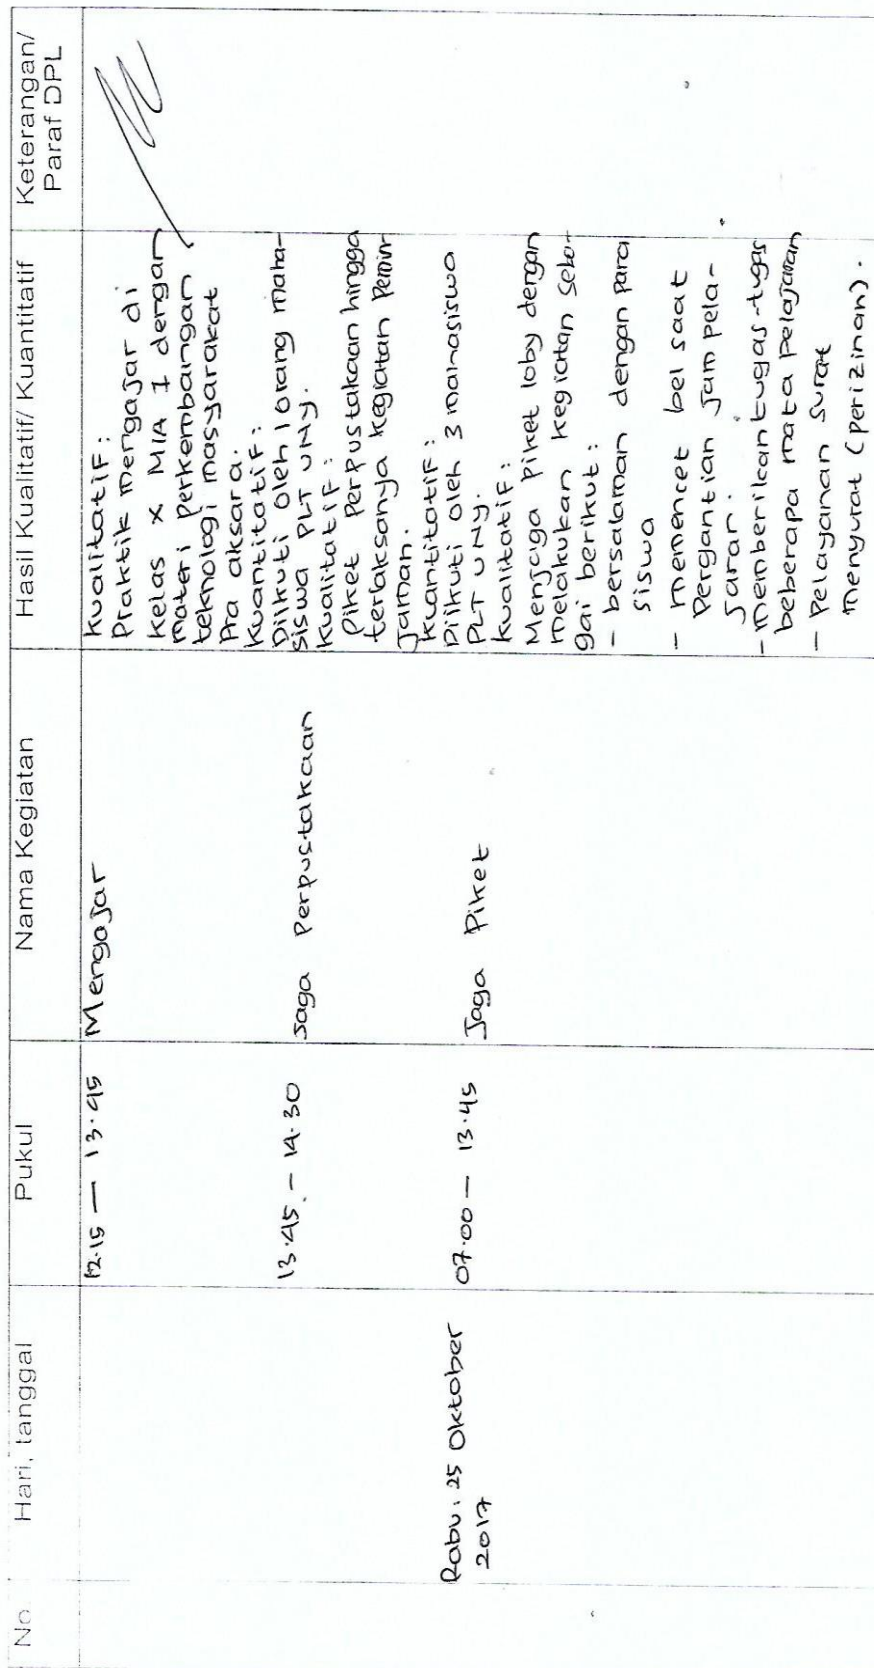 No
Hari, tanggal
Pukul
Nama Kegiatan
Hasil Kualitatif/ Kuantitatif
Keterangan/
Paraf DPL
12.15 — 13.45
Mengajar
Kualitatif:
Praktik mengajar di
kelas X MIA 1 dengan
materi perkembangan
teknologi masyarakat
Pra aksara.
Kuantitatif:
Diikuti oleh 1 orang maha-
siswa PLT UNY.
13.45 – 14.30
Jaga Perpustakaan
Kualitatif:
Piket Perpustakaan hingga
terlaksanya kegiatan Pemin
jaman.
Kuantitatif:
Diikuti oleh 3 mahasiswa
PLT UNY.
Rabu, 25 Oktober
2017
07.00 – 13.45
Jaga Piket
Kualitatif:
Menjaga Piket loby dengan
melakukan kegiatan seba-
gai berikut:
- bersalaman dengan para
siswa
- memencet bel saat
Pergantian jam pela-
jaran.
- memberikan tugas-tugas
beberapa mata pelajaran
- Pelayanan surat
menyurat (perizinan).